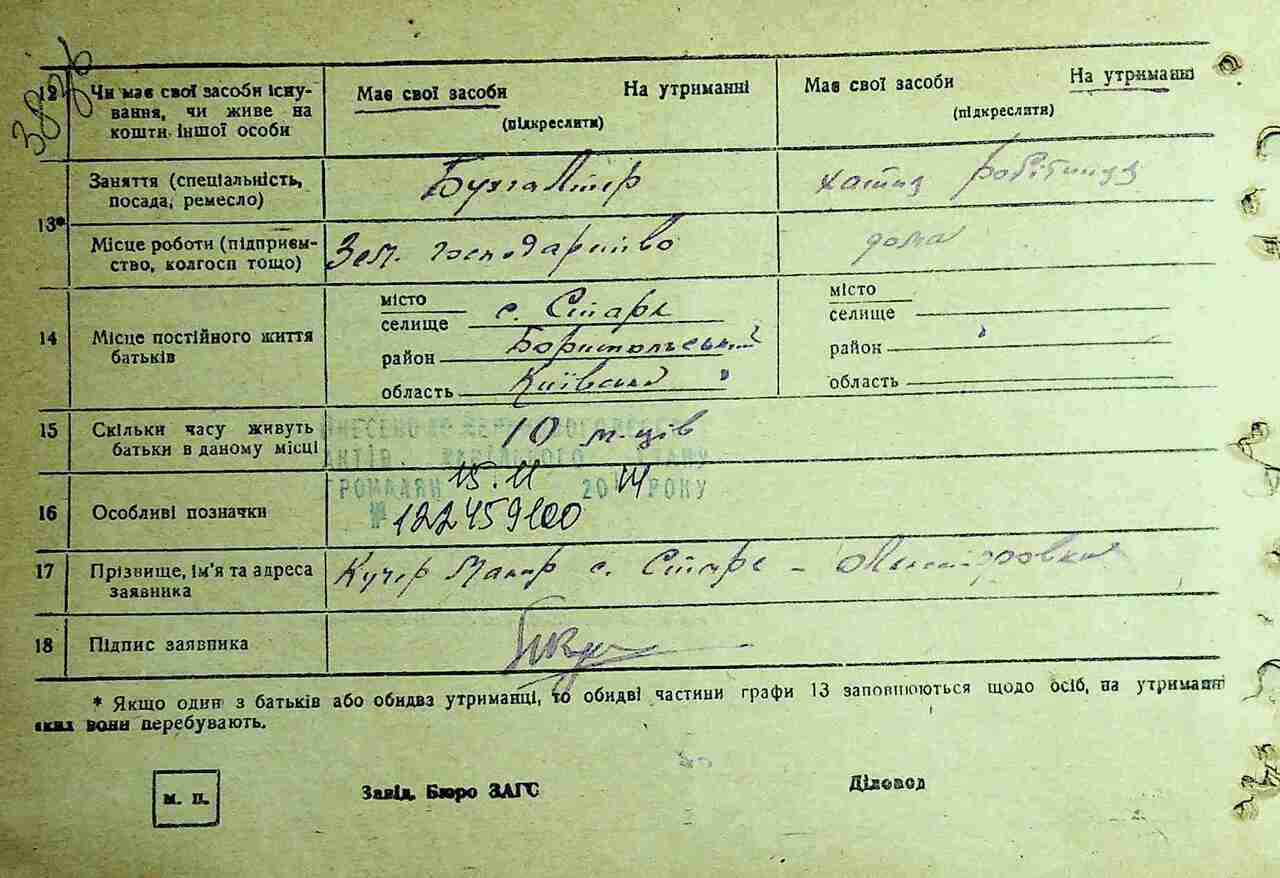 12 Чи має свої засоби існу-
вання, чи живе на
кошти іншої особи
Має свої засоби На утриманні
(підкреслити)
Має свої засоби На утриманні
(підкреслити)
13*
Заняття (спеціальність,
посада, ремесло)
Бухгалтер
хатня робітниця
Місце роботи (підприєм-
ство, колгосп тощо)
Зем. господарство
дома
14 Місце постійного життя
батьків
місто
селище с. Старе
район Бориспольський
область Київська
місто
селище
район
область
15 Скільки часу живуть
батьки в даному місці
10 м-ців
ВНЕСЕНО ДО ДЕРЖАВНОГО
АКТІВ ЦИВІЛЬНОГО СТАНУ
ГРОМАДЯН 15.11 20 14 РОКУ
№ 122459100
16 Особливі позначки
17 Прізвище, ім'я та адреса
заявника
Кучер Макар с. Старе -
18 Підпис заявника
* Якщо один з батьків або обидва утриманці, то обидві частини графи 13 заповнюються щодо осіб, на утриманні
яких вони перебувають.
м. п.
Завід. Бюро ЗАГС
Діловод